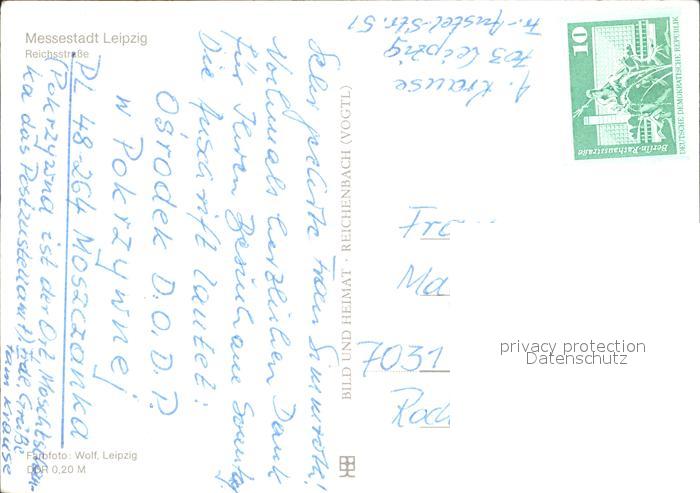 Messestadt Leipzig
Reichsstraße
Sehr geehrte Frau Simmroth!
Nochmals herzlichen Dank
für Ihren Besuch am Sonntag.
Die Anschrift lautet:
Ośrodek D.O.D.P.
w Pokrzywnej
PL 48-264 MOSZCZANKA
(Pokrzywna ist der Ort, Moschtschen-
ka das Postzustellamt) Frdl. Grüße
Krause
Farbfoto: Wolf, Leipzig
DDR 0,20 M
BILD UND HEIMAT · REICHENBACH (VOGTL)
A. Krause
703 Leipzig
Fr.-Austel-Str. 51
10
Berlin-Rathausstraße
DEUTSCHE DEMOKRATISCHE REPUBLIK
Fra
Ma
7031
privacy protection
Datenschutz